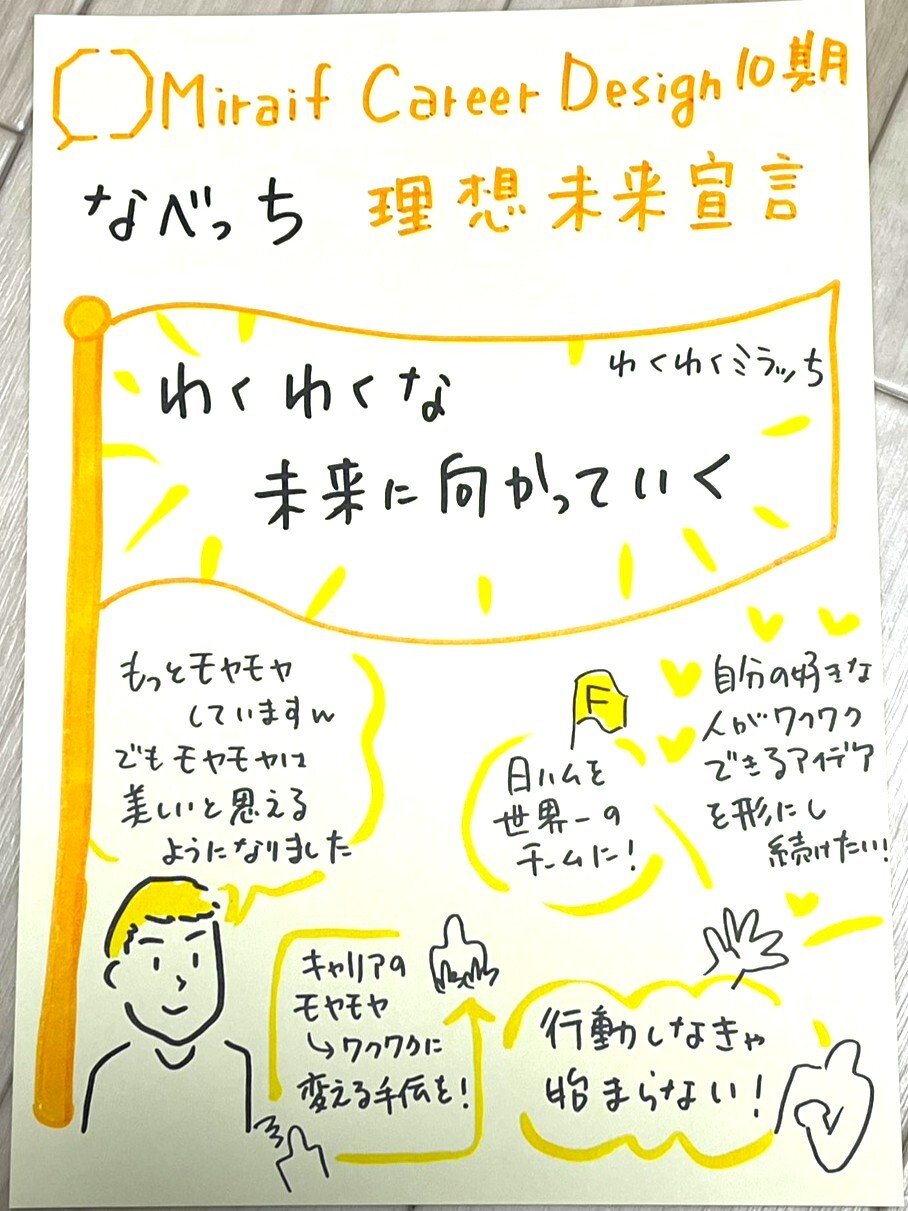 Miraif Career Design 10期
なべっち 理想未来宣言
わくわくミラッち
わくわくな
未来に向かっていく
もっとモヤモヤ
していますw
でもモヤモヤは
美しいと思える
ようになりました
F
日ハムを
世界一の
チームに!
自分の好きな
人がワクワク
できるアイデア
を形にし
続けたい!
キャリアの
モヤモヤ
↳ワクワクに
変える手伝を!
行動しなきゃ
始まらない!